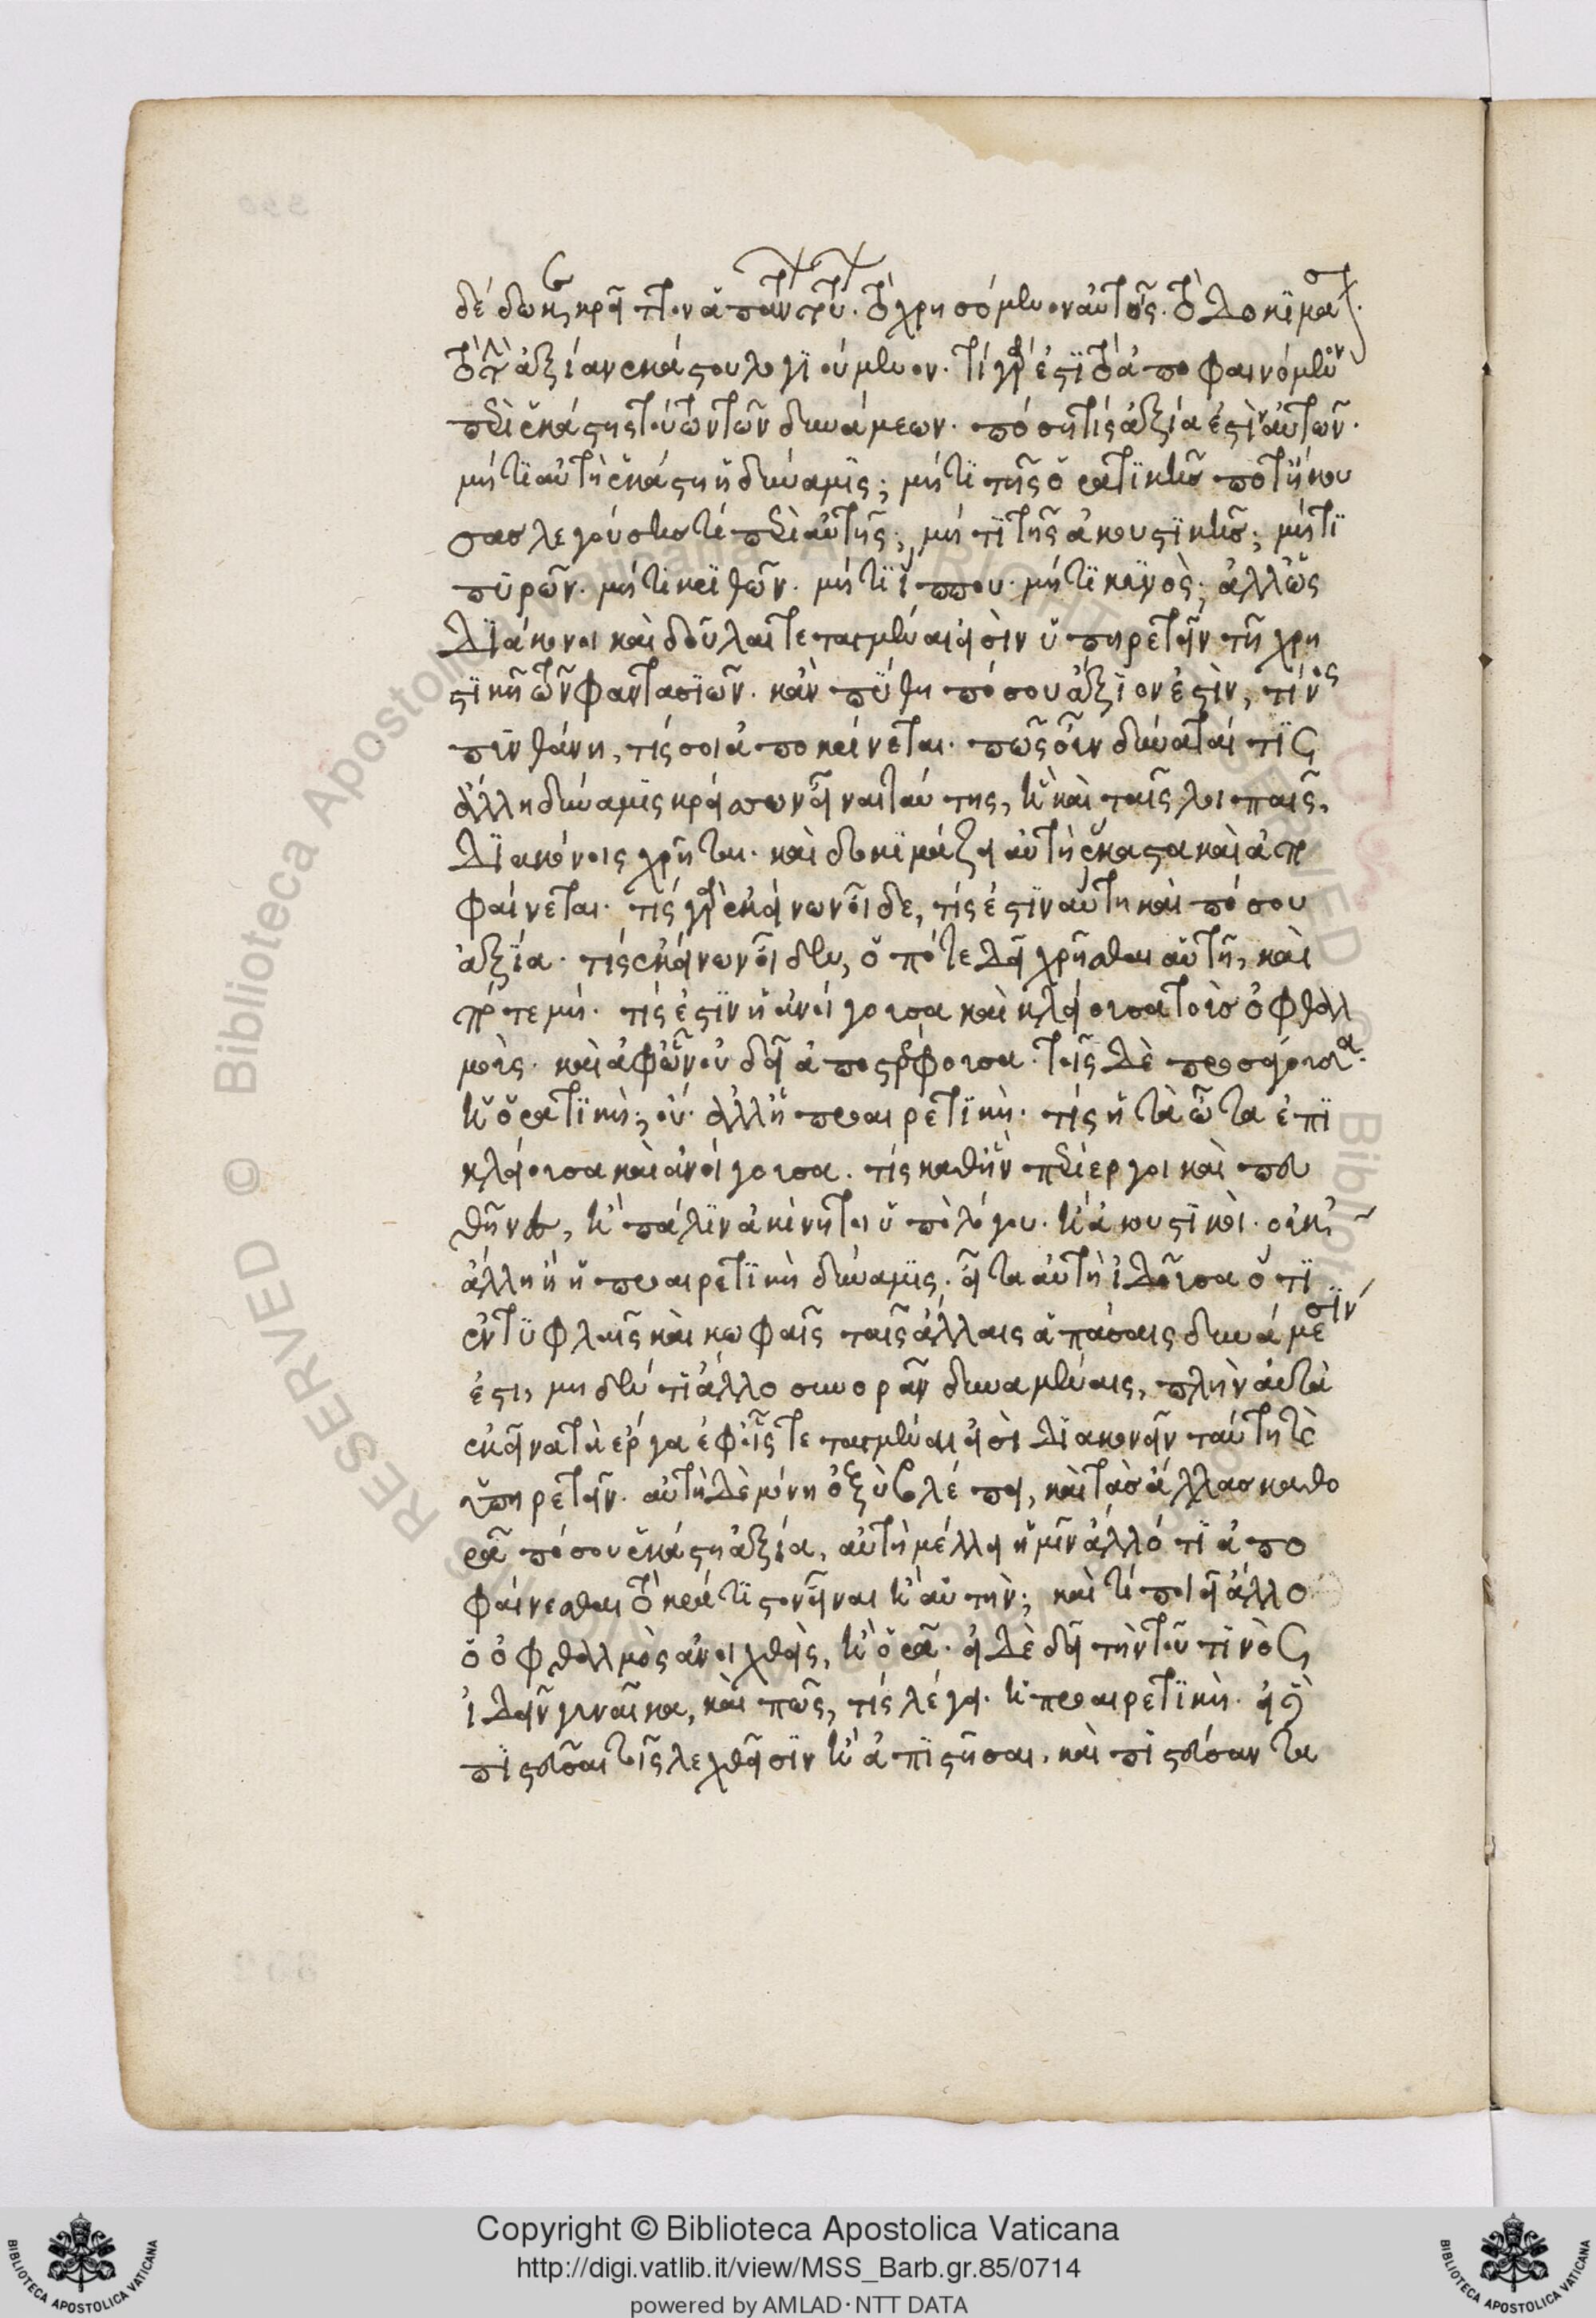 δέδωκε κρεῖττον ἁπάντων τούτων. τὸ χρησόμενον αὐτοῖς. τὸ δοκιμάσον.
τὸ τὴν ἀξίαν ἑκάστου λογιούμενον. τί γάρ ἐστι τὸ ἀποφαινόμενον
περὶ ἑκάστης τούτων τῶν δυνάμεων. πόση τίς ἀξία ἐστὶν αὐτῶν.
μήτι αὐτὴ ἑκάστη ἡ δύναμις; μήτι τῆς ὁρατικῆς ποτὲ ἤκου
σας λεγούσης τί περὶ αὑτῆς; μήτι τῆς ἀκουστικῆς; μήτι
πυρῶν. μήτι κριθῶν. μήτι ἵππου. μήτι κυνός; ἀλλ' ὡς
διάκονοι καὶ δοῦλαι τεταγμέναι εἰσὶν ὑπηρετεῖν τῇ χρη
στικῇ τῶν φαντασιῶν. κἂν πύθῃ πόσου ἄξιόν ἐστιν, τίνος
πυνθάνῃ, τίς σοι ἀποκρίνεται. πῶς οὖν δύναταί τις
ἄλλη δύναμις κρείσσων εἶναι ταύτης, ἣ καὶ ταῖς λοιπαῖς,
διακόνοις χρῆται. καὶ δοκιμάζει αὐτὴ ἕκαστα καὶ ἀπο
φαίνεται. τίς γὰρ ἐκείνων οἶδε, τίς ἐστιν αὐτὴ καὶ πόσου
ἀξία. τίς ἐκείνων οἶδεν, ὁπότε δεῖ χρῆσθαι αὐτῇ, καὶ
πότε μή. τίς ἐστιν ἡ ἀνοίγουσα καὶ κλείουσα τοὺς ὀφθαλ
μοὺς. καὶ ἀφ' ὧν οὐ δεῖ ἀποστρέφουσα. τοῖς δὲ προσάγουσα.
ἡ ὁρατική; οὐ. ἀλλ' ἡ προαιρετική. τίς ἡ τὰ ὦτα ἐπι
κλείουσα καὶ ἀνοίγουσα. τίς καθ' ἣν περίεργοι καὶ πευ
θῆνες, ἢ πάλιν ἀκίνητοι ὑπὸ λόγου. ἡ ἀκουστική. οὐκ
ἄλλη ἢ ἡ προαιρετικὴ δύναμις. εἶτα αὐτὴ ἰδοῦσα ὅτι
ἐν τυφλαῖς καὶ κωφαῖς ταῖς ἄλλαις ἁπάσαις δυνάμεσίν
ἐστι, μηδέν τι ἄλλο συνορᾶν δυναμέναις, πλὴν αὐτὰ
ἐκεῖνα τὰ ἔργα ἐφ' οἷς τεταγμέναι εἰσὶ διακονεῖν ταύτῃ τὲ
ὑπηρετεῖν. αὐτὴ δὲ μόνη ὀξὺ βλέπει, καὶ τὰς ἄλλας καθο
ρᾷ πόσου ἑκάστη ἀξία, αὐτὴ μέλλει ἡμῖν ἄλλό τι ἀπο
φαίνεσθαι τὸ κράτιστον εἶναι ἢ αὑτήν; καὶ τί ποιεῖ ἄλλο
ὁ ὀφθαλμὸς ἀνοιχθεὶς, ἢ ὁρᾷ. εἰ δὲ δεῖ τὴν τοῦ τινὸς
ἰδεῖν γυναῖκα, καὶ πῶς, τίς λέγει. ἡ προαιρετική. εἰ δὲ
πιστεῦσαι τοῖς λεχθεῖσιν ἢ ἀπιστῆσαι. καὶ πιστεύσαντα